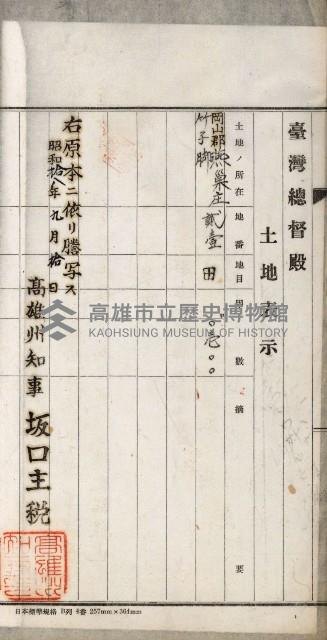 臺灣總督殿
土地表示
土地ノ所在 地番 地目 甲數 摘要
岡山郡燕巢庄
竹子腳
貳壹 田 〇壱〇〇
右原本ニ依リ謄写ス
昭和拾八年九月拾日
高雄州知事 坂口主税
高雄市立歷史博物館
KAOHSIUNG MUSEUM OF HISTORY
日本標準規格 B列4番 257mm×364mm